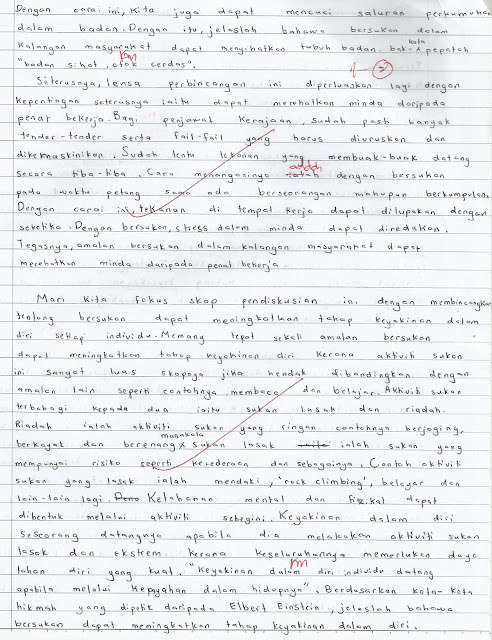 Dengan cara ini, kita juga dapat mencuci saluran perkumuhan
dalam badan. Dengan itu, jelaslah bahawa bersukan dalam
kalangan masyarakat dapat menyihatkan tubuh badan. bak kata pepatah
"badan sihat, otak cerdas".
Seterusnya, lensa perbincangan ini diperluaskan lagi dengan
kepentingan seterusnya iaitu dapat merehatkan minda daripada
penat bekerja. Bagi penjawat kerajaan, sudah pasti banyak
tender-tender serta fail-fail yang harus diuruskan dan
dikemaskinikan. Sudah tentu tekanan yang membuak-buak datang
secara tiba-tiba. Cara menangasinya adalah dengan bersukan
pada waktu petang sama ada berseorangan mahupun berkumpulan.
Dengan cara ini, tekanan di tempat kerja dapat dilupakan dengan
seketika. Dengan bersukan, stress dalam minda dapat diredakan.
Tegasnya, amalan bersukan dalam kalangan masyarakat dapat
merehatkan minda daripada penat bekerja
Mari kita fokus skop pendiskusian ini dengan membincangkan
tentang bersukan dapat meningkatkan tahap keyakinan dalam
diri setiap individu. Memang tepat sekali amalan bersukan
dapat meningkatkan tahap keyakinan diri kerana aktiviti sukan
ini sangat luas skopnya jika hendak dibandingkan dengan
amalan lain seperti contohnya, membaca dan belajar. Aktiviti sukan
terbahagi kepada dua iaitu sukan lasak dan riadah.
Riadah ialah aktiviti sukan yang ringan contohnya berjoging,
berkayak dan berenang manakala sukan lasak ialah sukan yang
mempunyai risiko seperti kecederaan dan sebagainya. Contoh aktiviti
sukan yang lasak ialah mendaki, 'rock climbing', belayar dan
lain-lain lagi. Ketahanan mental dan fizikal dapat
dibentuk melalui aktiviti sebegini. Keyakinan dalam diri
seseorang datangnya apabila dia melakukan aktiviti sukan
lasak dan ekstrem. Kerana keseluruhannya memerlukan daya
tahan diri yang kuat. "Keyakinan dalam diri individu datang
apabila melalui kepayahan dalam hidupnya". Berdasarkan kata-kata
hikmah yang dipetik daripada Elbert Einstein, jelaslah bahawa
bersukan dapat meningkatkan tahap keyakinan dalam diri.